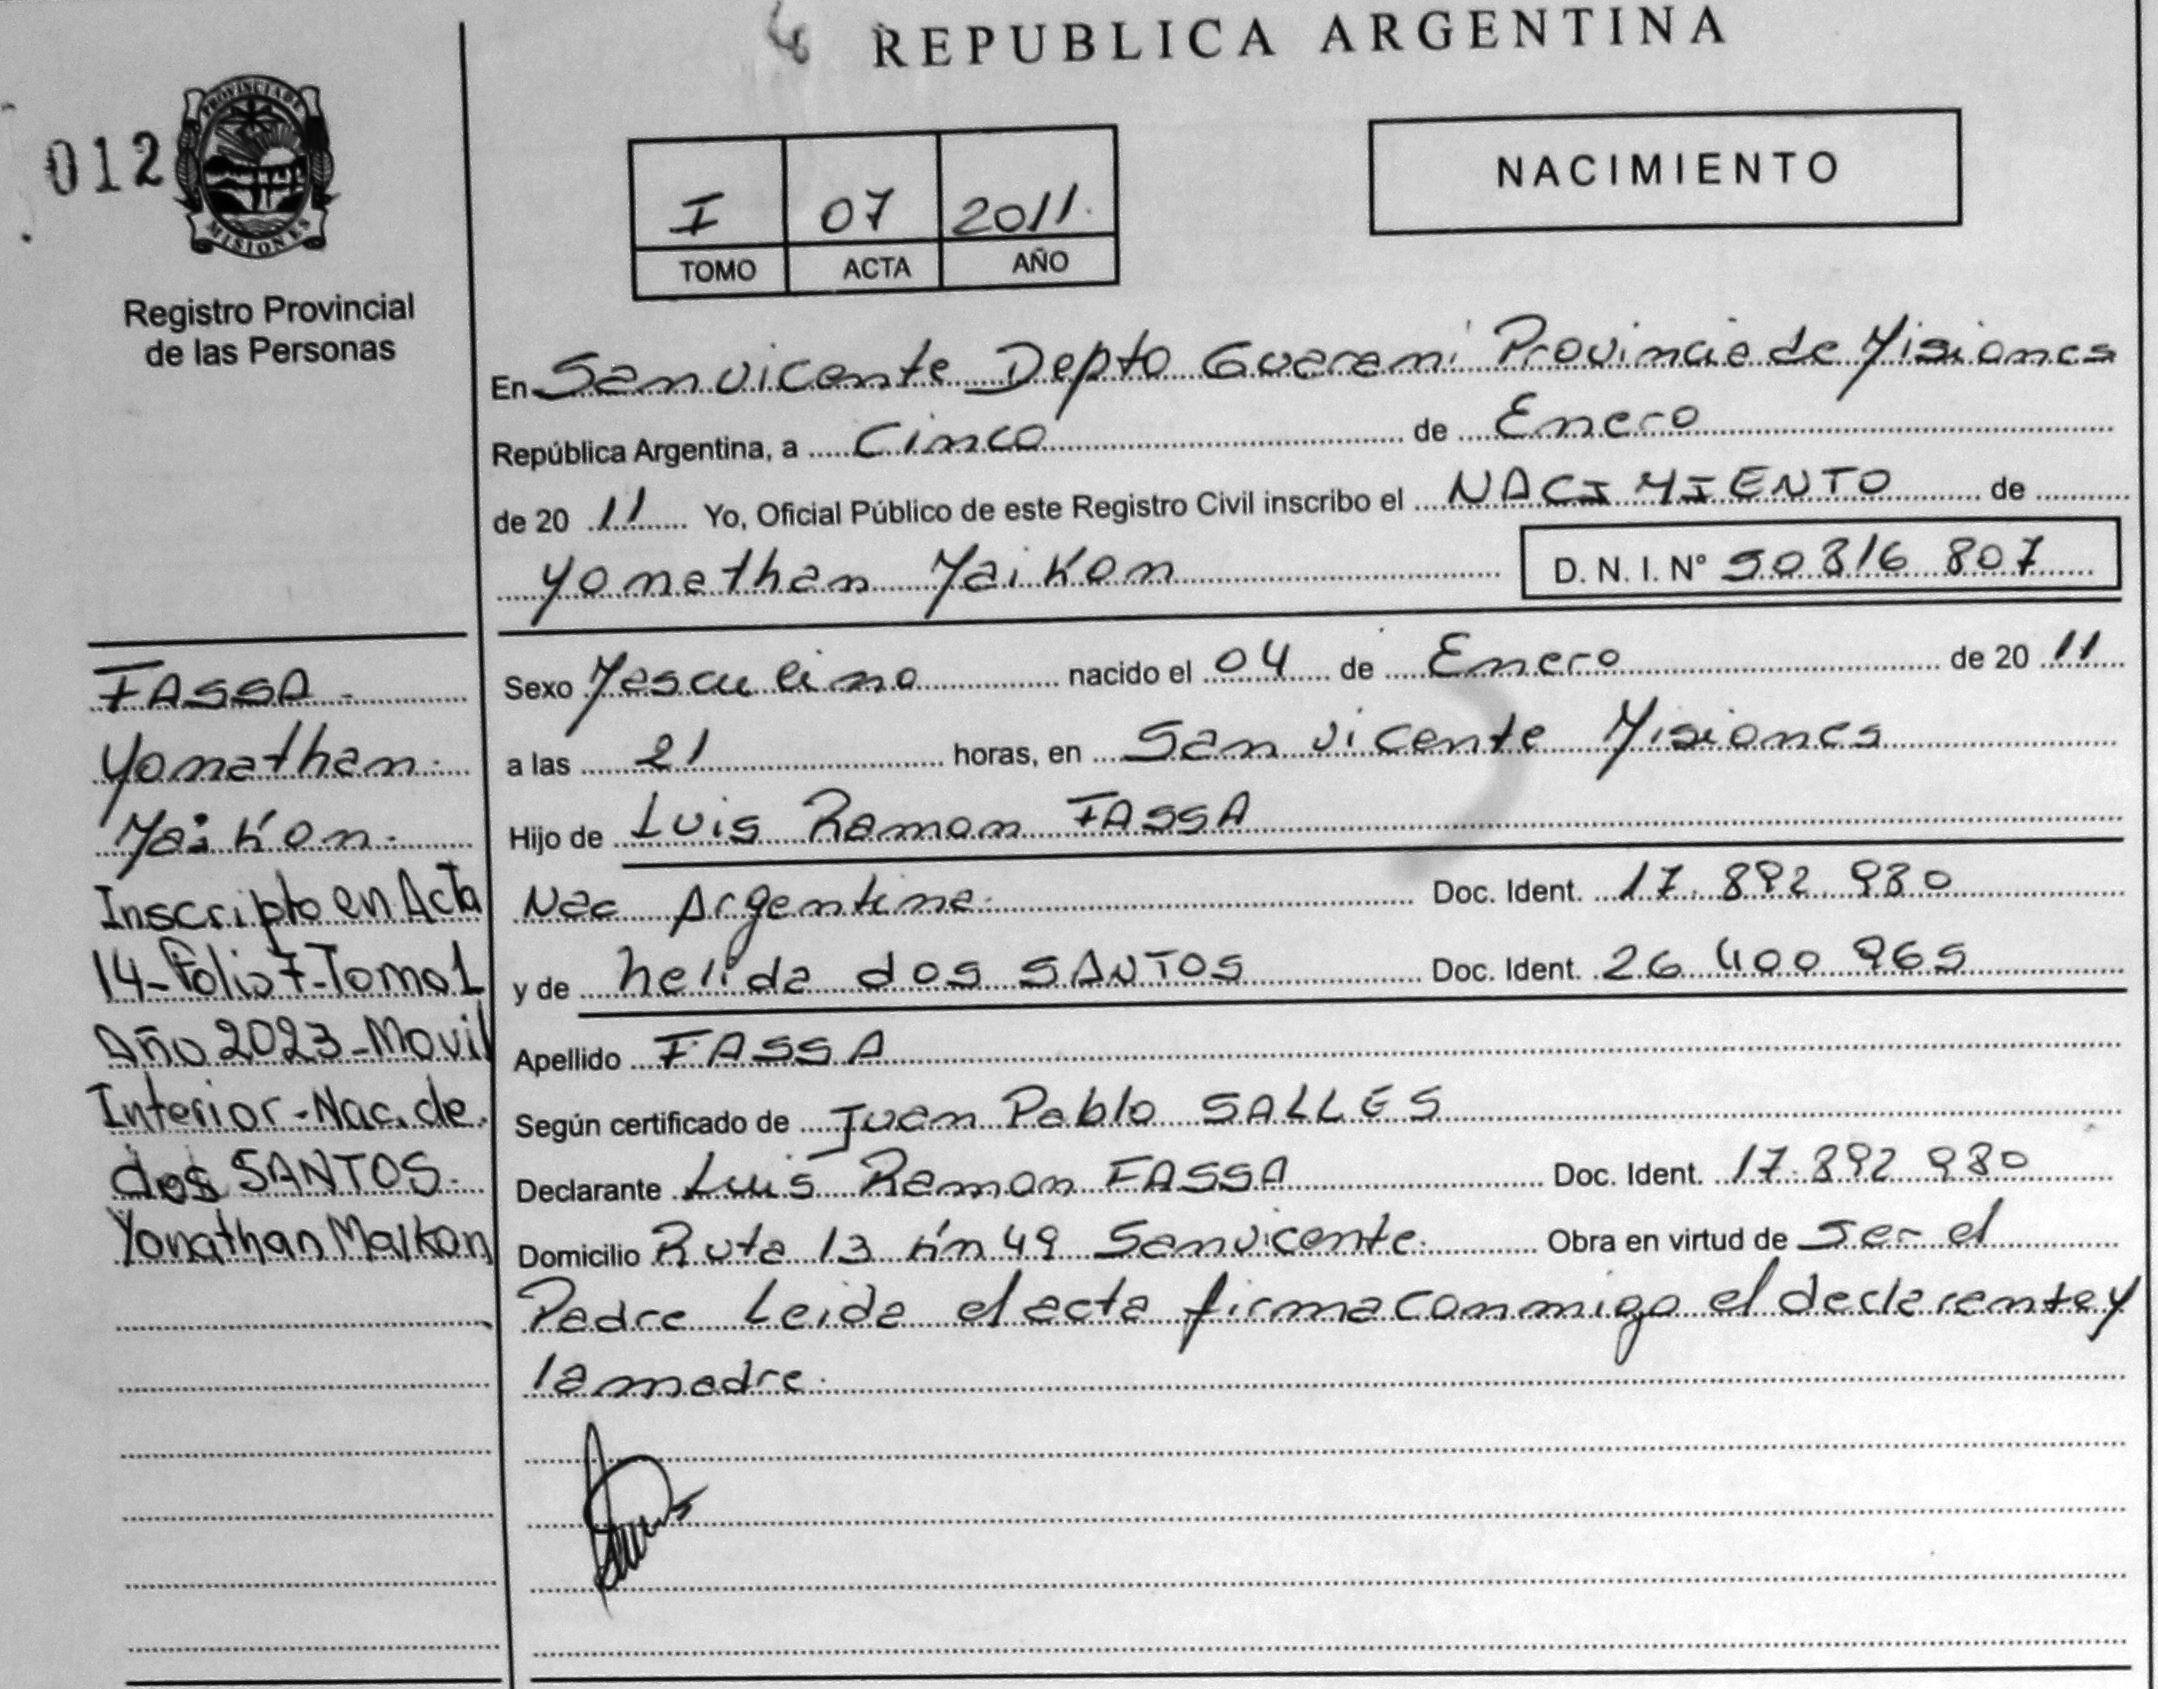 REPUBLICA ARGENTINA
012
PROVINCIA DE
MISIONES
Registro Provincial
de las Personas
I 07 2011
TOMO ACTA AÑO
NACIMIENTO
En San vicente Depto Guarani Provincia de Misiones
República Argentina, a Cinco de Enero
de 20 11 Yo, Oficial Público de este Registro Civil inscribo el NACIMIENTO de
Yonathan Maikon D. N. I. N° 50 816 807
Sexo Masculino nacido el 04 de Enero de 20 11
a las 21 horas, en San vicente Misiones
Hijo de Luis Ramon FASSA
Nac Argentina. Doc. Ident. 17.892 980
y de helida dos SANTOS Doc. Ident. 26 400 965
Apellido FASSA
Según certificado de Juan Pablo SALLES
Declarante Luis Ramon FASSA Doc. Ident. 17.892 980
Domicilio Ruta 13 Km 49 San vicente. Obra en virtud de ser el
Padre Leida el acta firma conmigo el declarante y
la madre.
FASSA -
Yonathan.
Maikon.
Inscripto en Acta
14-Folio 7-Tomo 1
Año 2023-Movil
Interior-Nac. de
dos SANTOS.
Yonathan Maikon